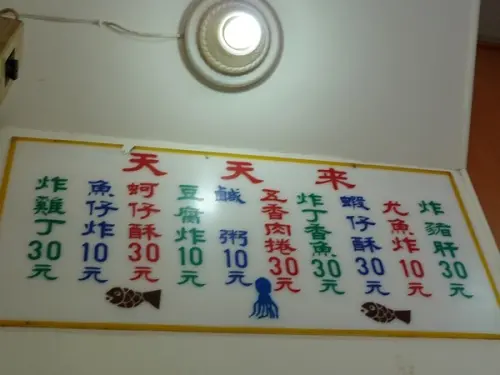 天天来
炸雞丁30元
魚仔炸10元
蚵仔酥30元
豆腐炸10元
鹹粥10元
五香肉捲30元
炸丁香魚30元
蝦仔酥30元
尤魚炸10元
炸豬肝30元